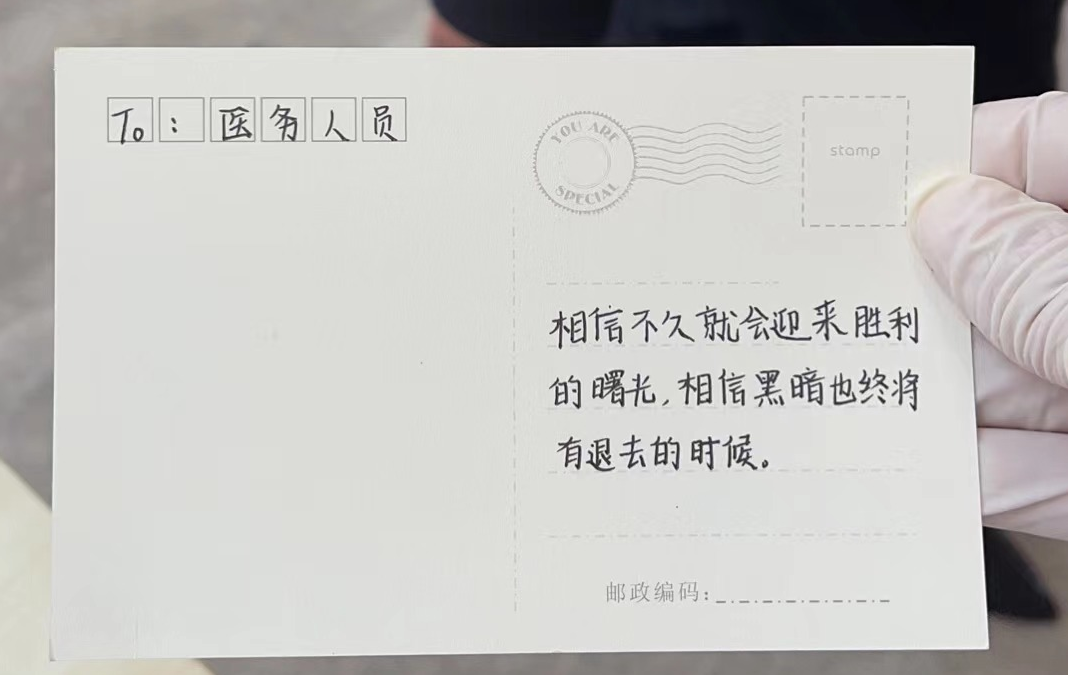 To：医务人员
YOU ARE
SPECIAL
stamp
相信不久就会迎来胜利
的曙光,相信黑暗也终将
有退去的时候。
邮政编码: